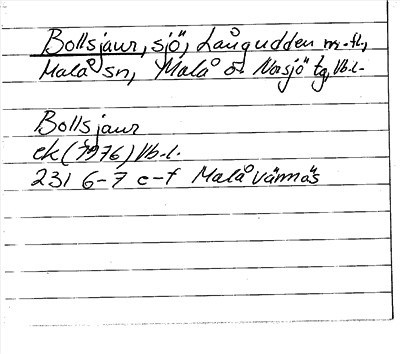 Bollsjaur, sjö, Långudden m.fl.,
Malå sn, Malå o Norsjö tg, Vb.l.
Bollsjaur
ek (1976) Vb.l.
231 6-7 c-f Malåvännäs